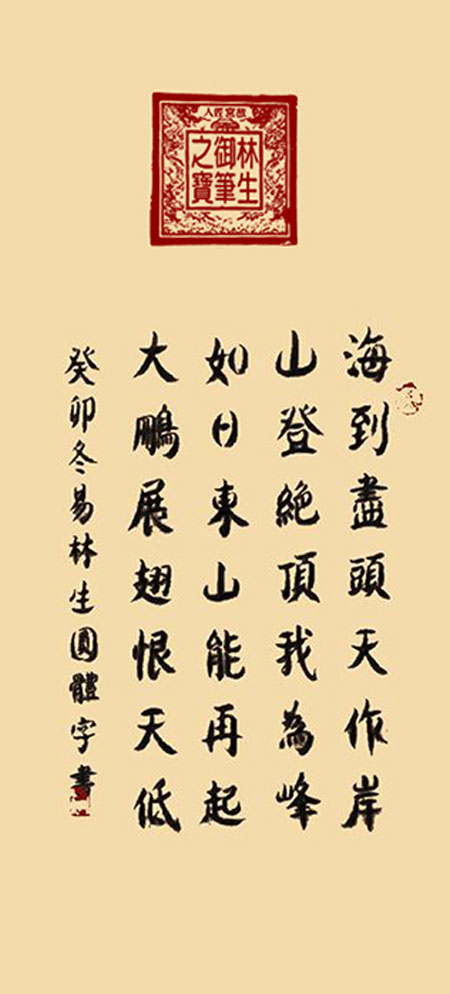 林生
御筆
之寶
海到盡頭天作岸
山登絶頂我為峰
如日東山能再起
大鵬展翅恨天低
癸卯冬易林生圓體字書